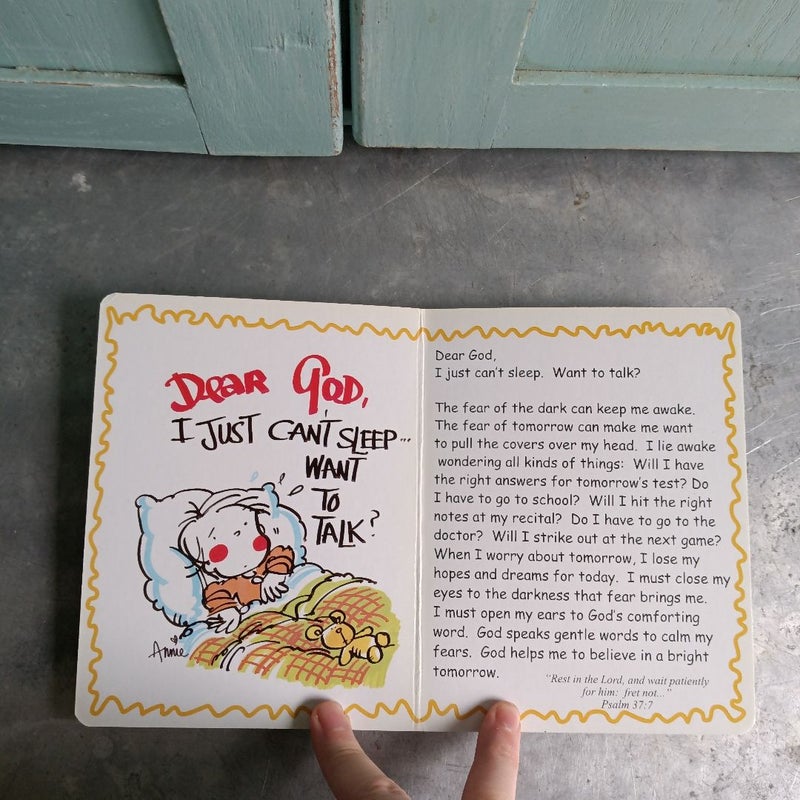 Dear God,
I JUST CAN'T SLEEP...
WANT
TO
TALK?
Annie
Dear God,
I just can't sleep.  Want to talk?
The fear of the dark can keep me awake.
The fear of tomorrow can make me want
to pull the covers over my head.  I lie awake
wondering all kinds of things:  Will I have
the right answers for tomorrow's test? Do
I have to go to school?  Will I hit the right
notes at my recital?  Do I have to go to the
doctor?  Will I strike out at the next game?
When I worry about tomorrow, I lose my
hopes and dreams for today.  I must close my
eyes to the darkness that fear brings me.
I must open my ears to God's comforting
word.  God speaks gentle words to calm my
fears.  God helps me to believe in a bright
tomorrow.
"Rest in the Lord, and wait patiently
for him:  fret not..."
Psalm 37:7